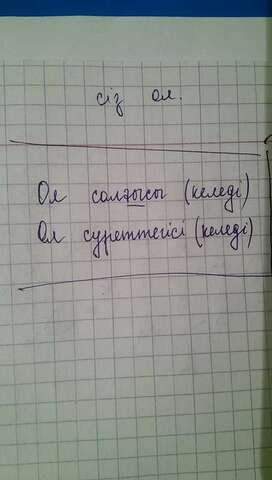 сіз ол.
Ол салғысы (келеді)
Ол суреттегісі (келеді)